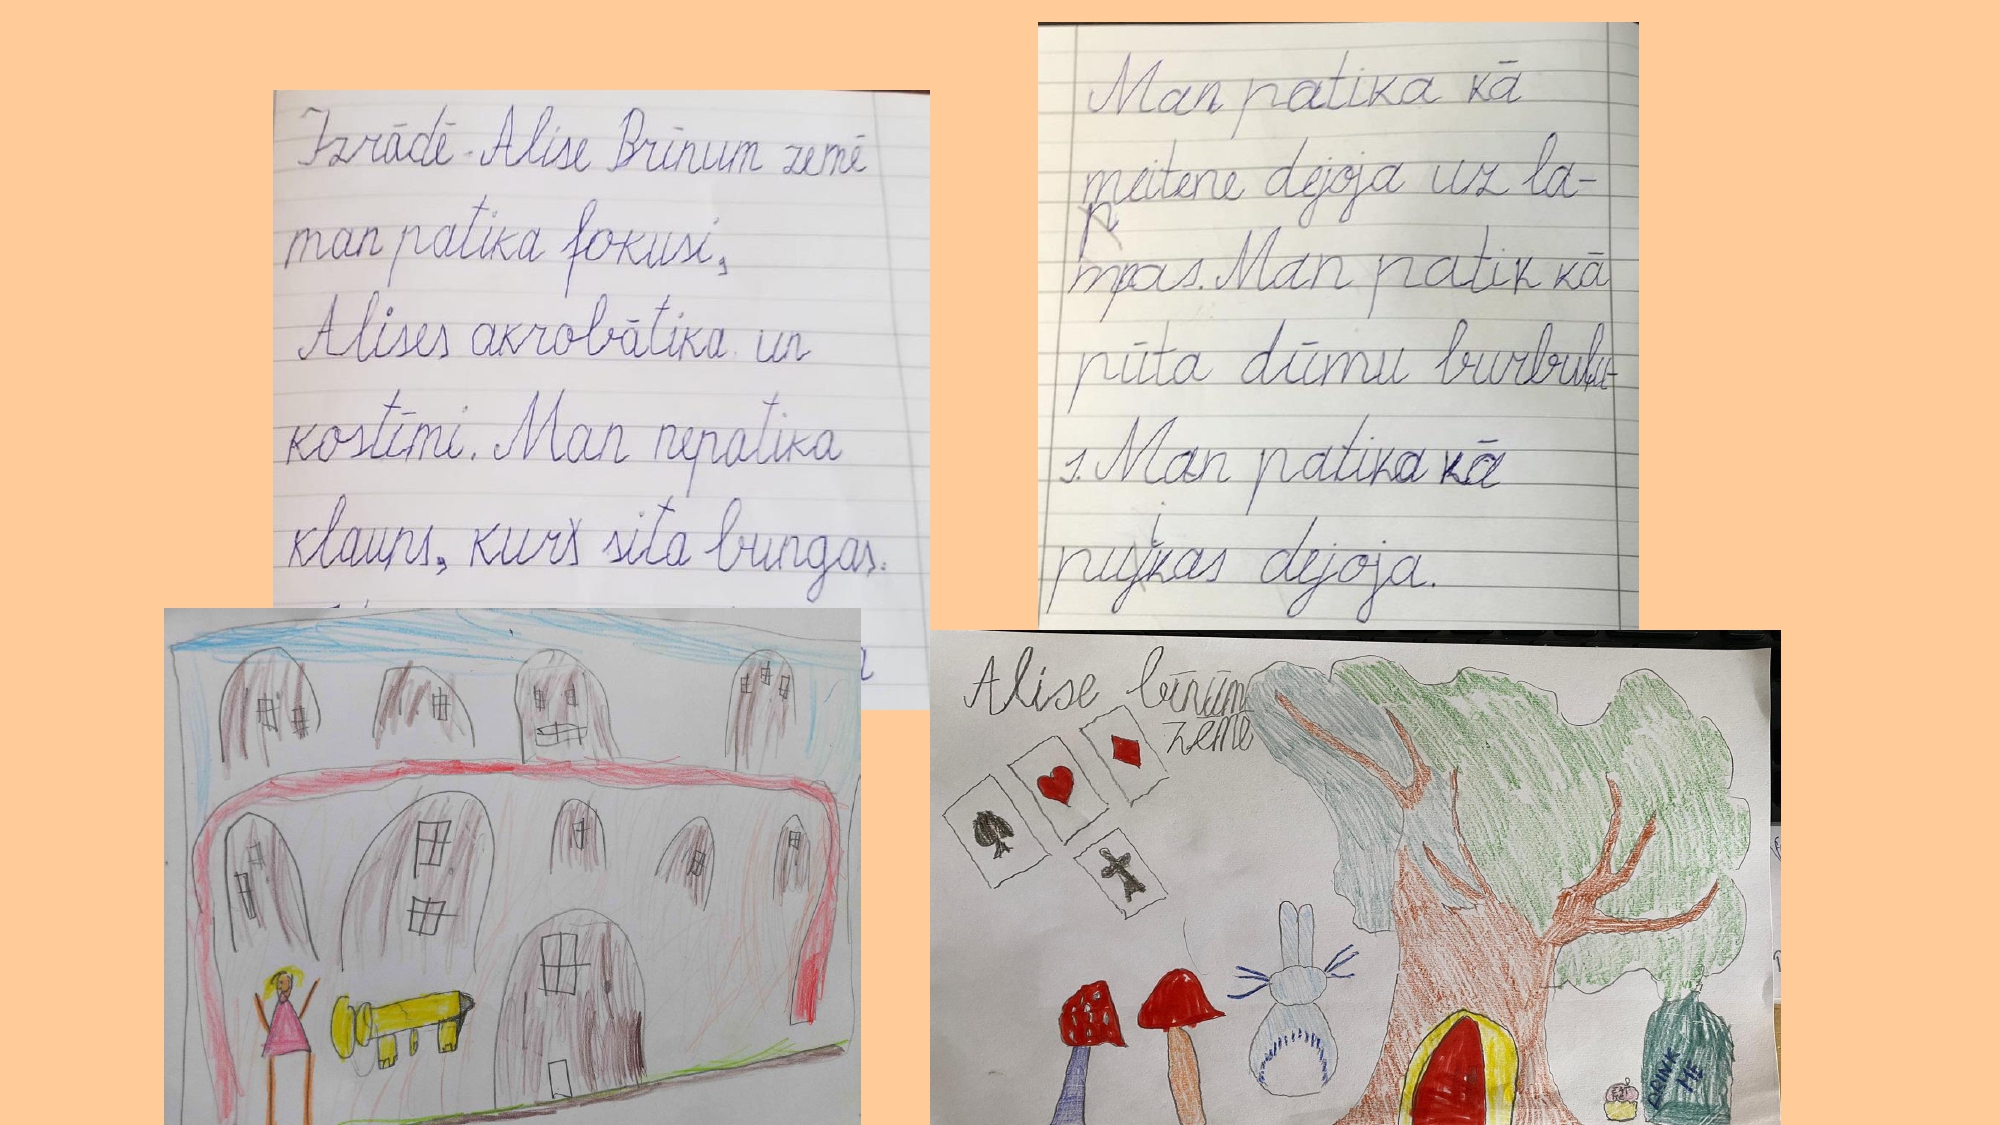 Izrādē - Alise Brīnum zemē
man patika fokusi,
Alises akrobātika un
kostīmi. Man nepatika
klauns, kurš sita bungas.
Man patika kā
meitene dejoja uz la-
mpas. Man patik kā
pūta dūmu burbuļu-
s. Man patika kā
pujkas dejoja.
Alise bīnūm
zēmē
DRINK
ME